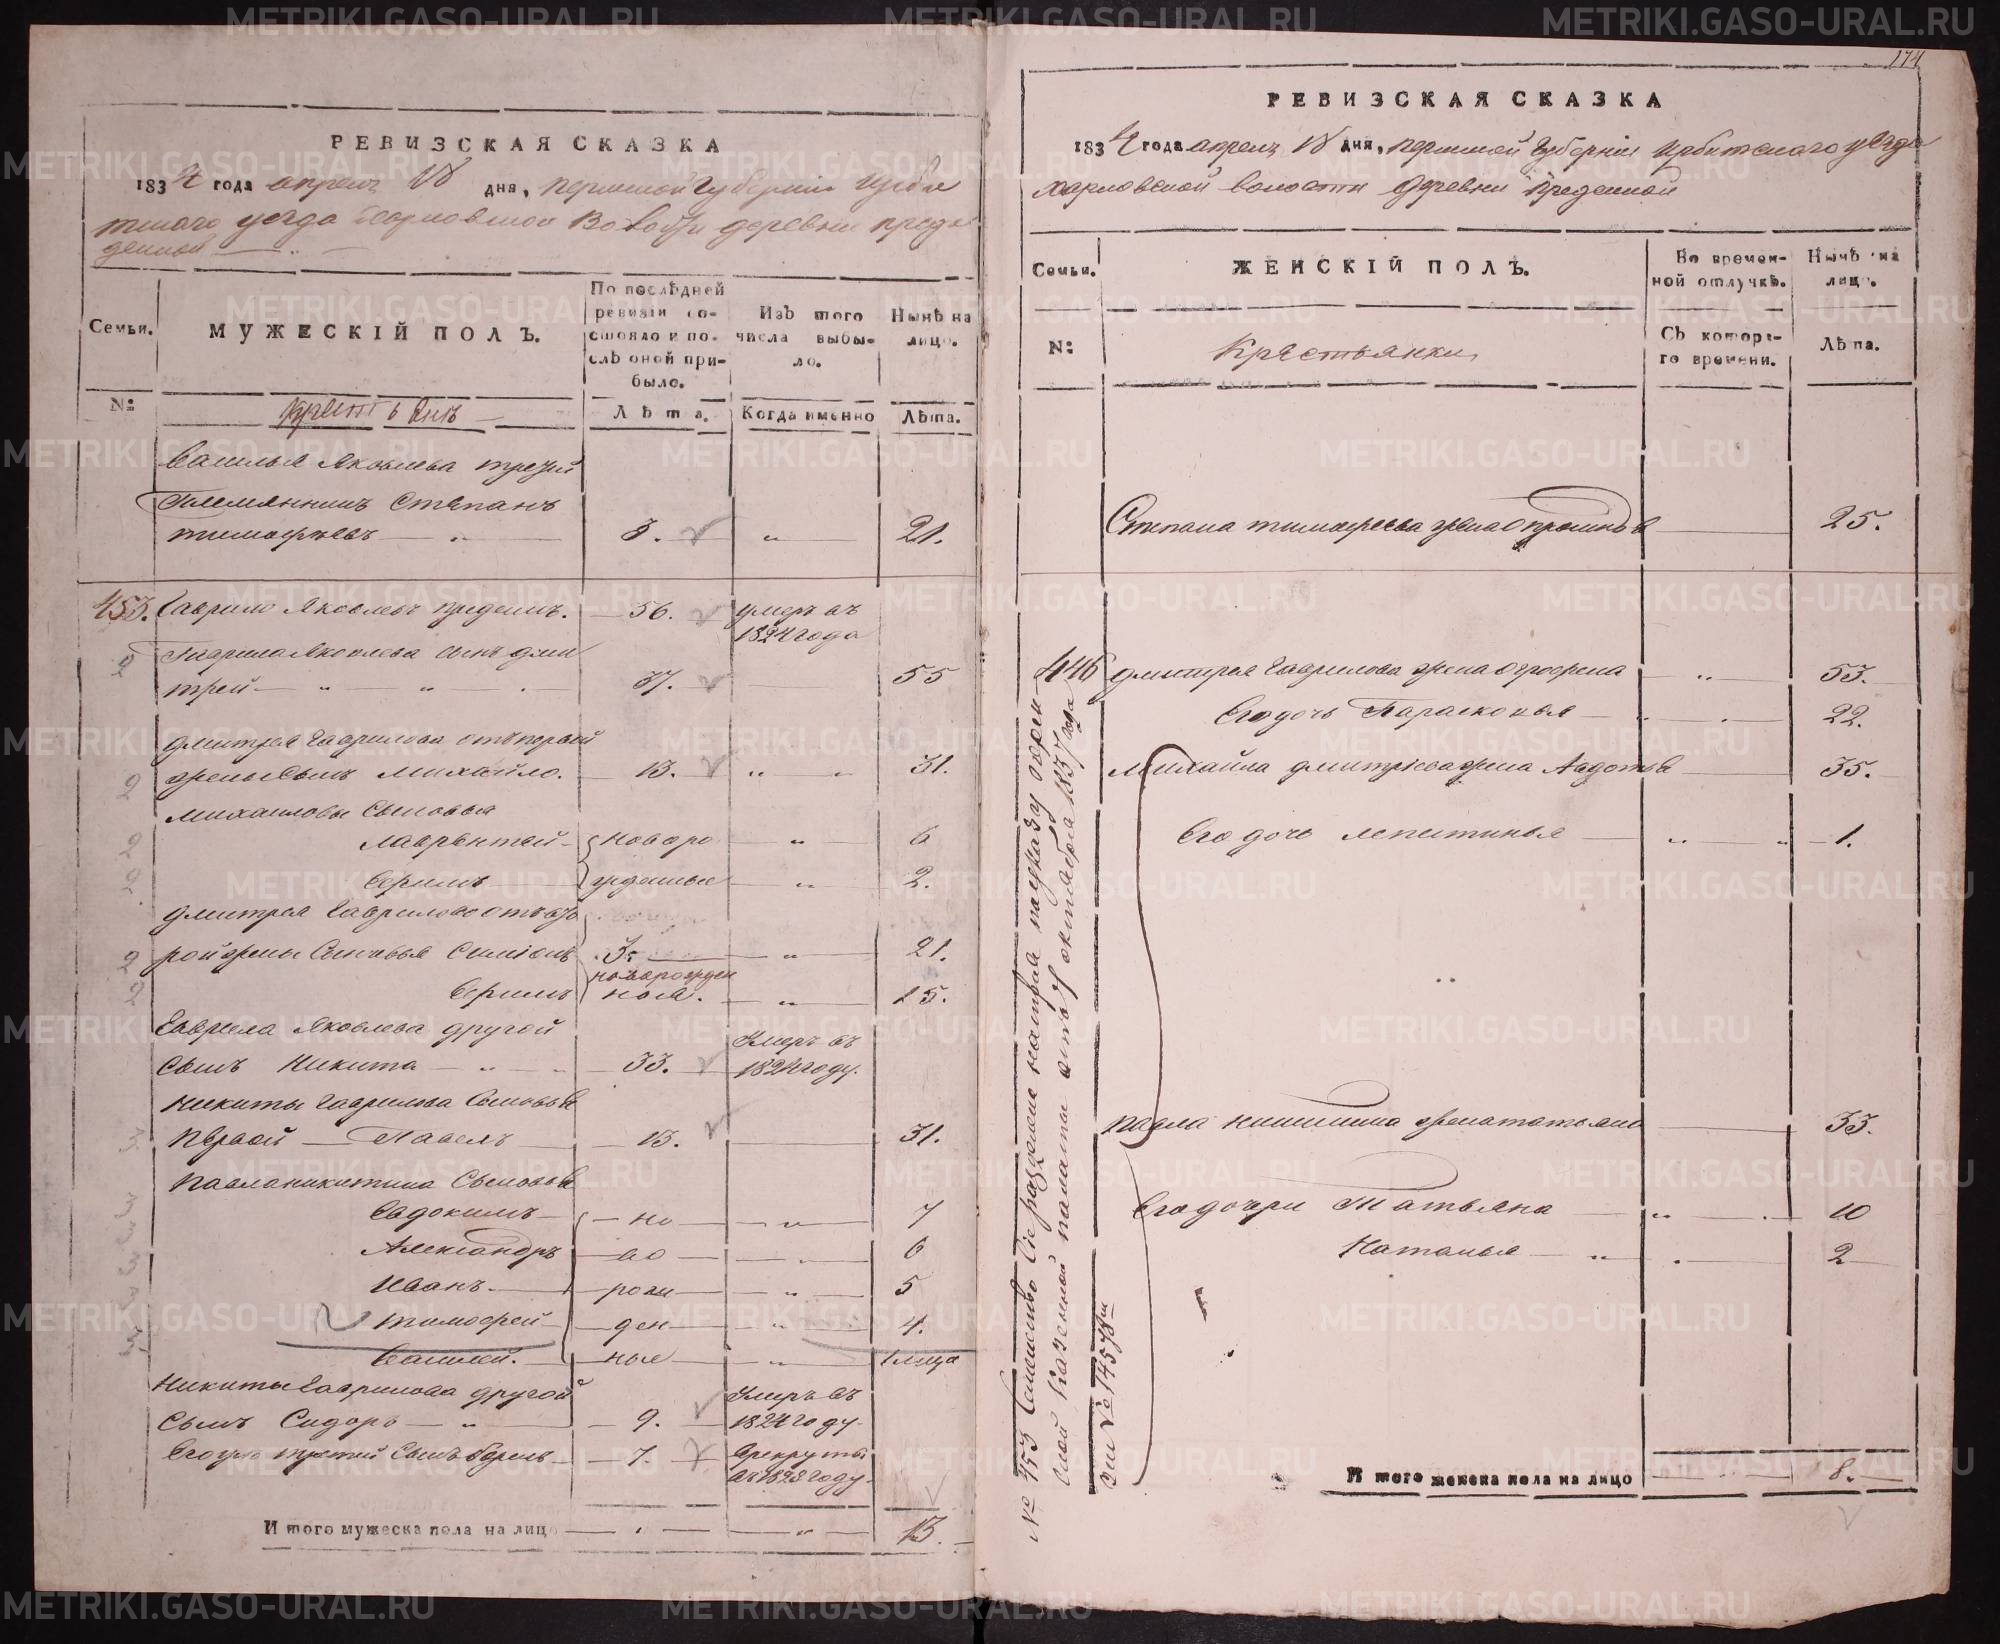 РЕВИЗСКАЯ СКАЗКА
1834 года апреля 18 дня, пермской губернии ирби
тского уезда харловской волости деревни преде
денной
Семьи.
МУЖЕСКІЙ ПОЛЪ.
По послѣдней ревизіи состояло и послѣ оной прибыло.
Изъ того числа выбыло.
Нынѣ на лицо.
№
Крестьянъ
Лѣта.
Когда именно
Лѣта.
Василья Яковлева третей
Племянникъ Степанъ
тимофеевъ 3. 21.
453. Гаврило Яковлевъ 56. умеръ въ
1824 года
Гаврила Яковлева сынъ дми
трей 37. 55
дмитрея Гаврилова отъ первой
жены сынъ Михайло. 13. 31.
михаиловы Сыновья
лаврентей новоро 6
ефимъ жденные 2.
дмитрея Гаврилова отъ вто
рой жены Сыновья Симіонъ 3. 21.
новорожден
ефимъ ной. 15.
Гаврила Яковлева другой
сынъ Никита 33. умеръ въ
1824 году.
никиты гаврилова Сыновья
первой Павелъ 13. 31.
павла никитина Сыновья
Евдокимъ но 7
Александръ во 6
Иванъ рож 5
тимофей ден 4.
Василей. ные 1 лица
никиты Гаврилова другой
сынъ Сидоръ 9. умеръ въ
1824 году.
Его же третий Сынъ 7. в рекруты
въ 1828 году.
И того мужеска пола на лицо 13.
174
РЕВИЗСКАЯ СКАЗКА
1834 года апреля 18 дня, пермской Губерніи Ирбитского уезда
харловской волости деревни Предённой
Семьи.
ЖЕНСКІЙ ПОЛЪ.
Во временной отлучкѣ.
Нынѣ на лицо.
№:
Крестьянки,
Съ котораго времени.
Лѣта.
Степана тимофеева жена 25.
446 дмитрея Гаврилова жена 53.
Его дочь Парасковья 22.
михайла дмитриева жена Авдотья 35.
Его дочь 1.
павла никитина жена татьяна 33.
Его дочери Татьяна 10
Наталья 2
И того женска пола на лицо 8.
№ 453 Семейство сіе разделено на три по указу перм
ской Казенной палаты отъ 8 октября 1837 года
за № 14578м
METRIKI.GASO-URAL.RU